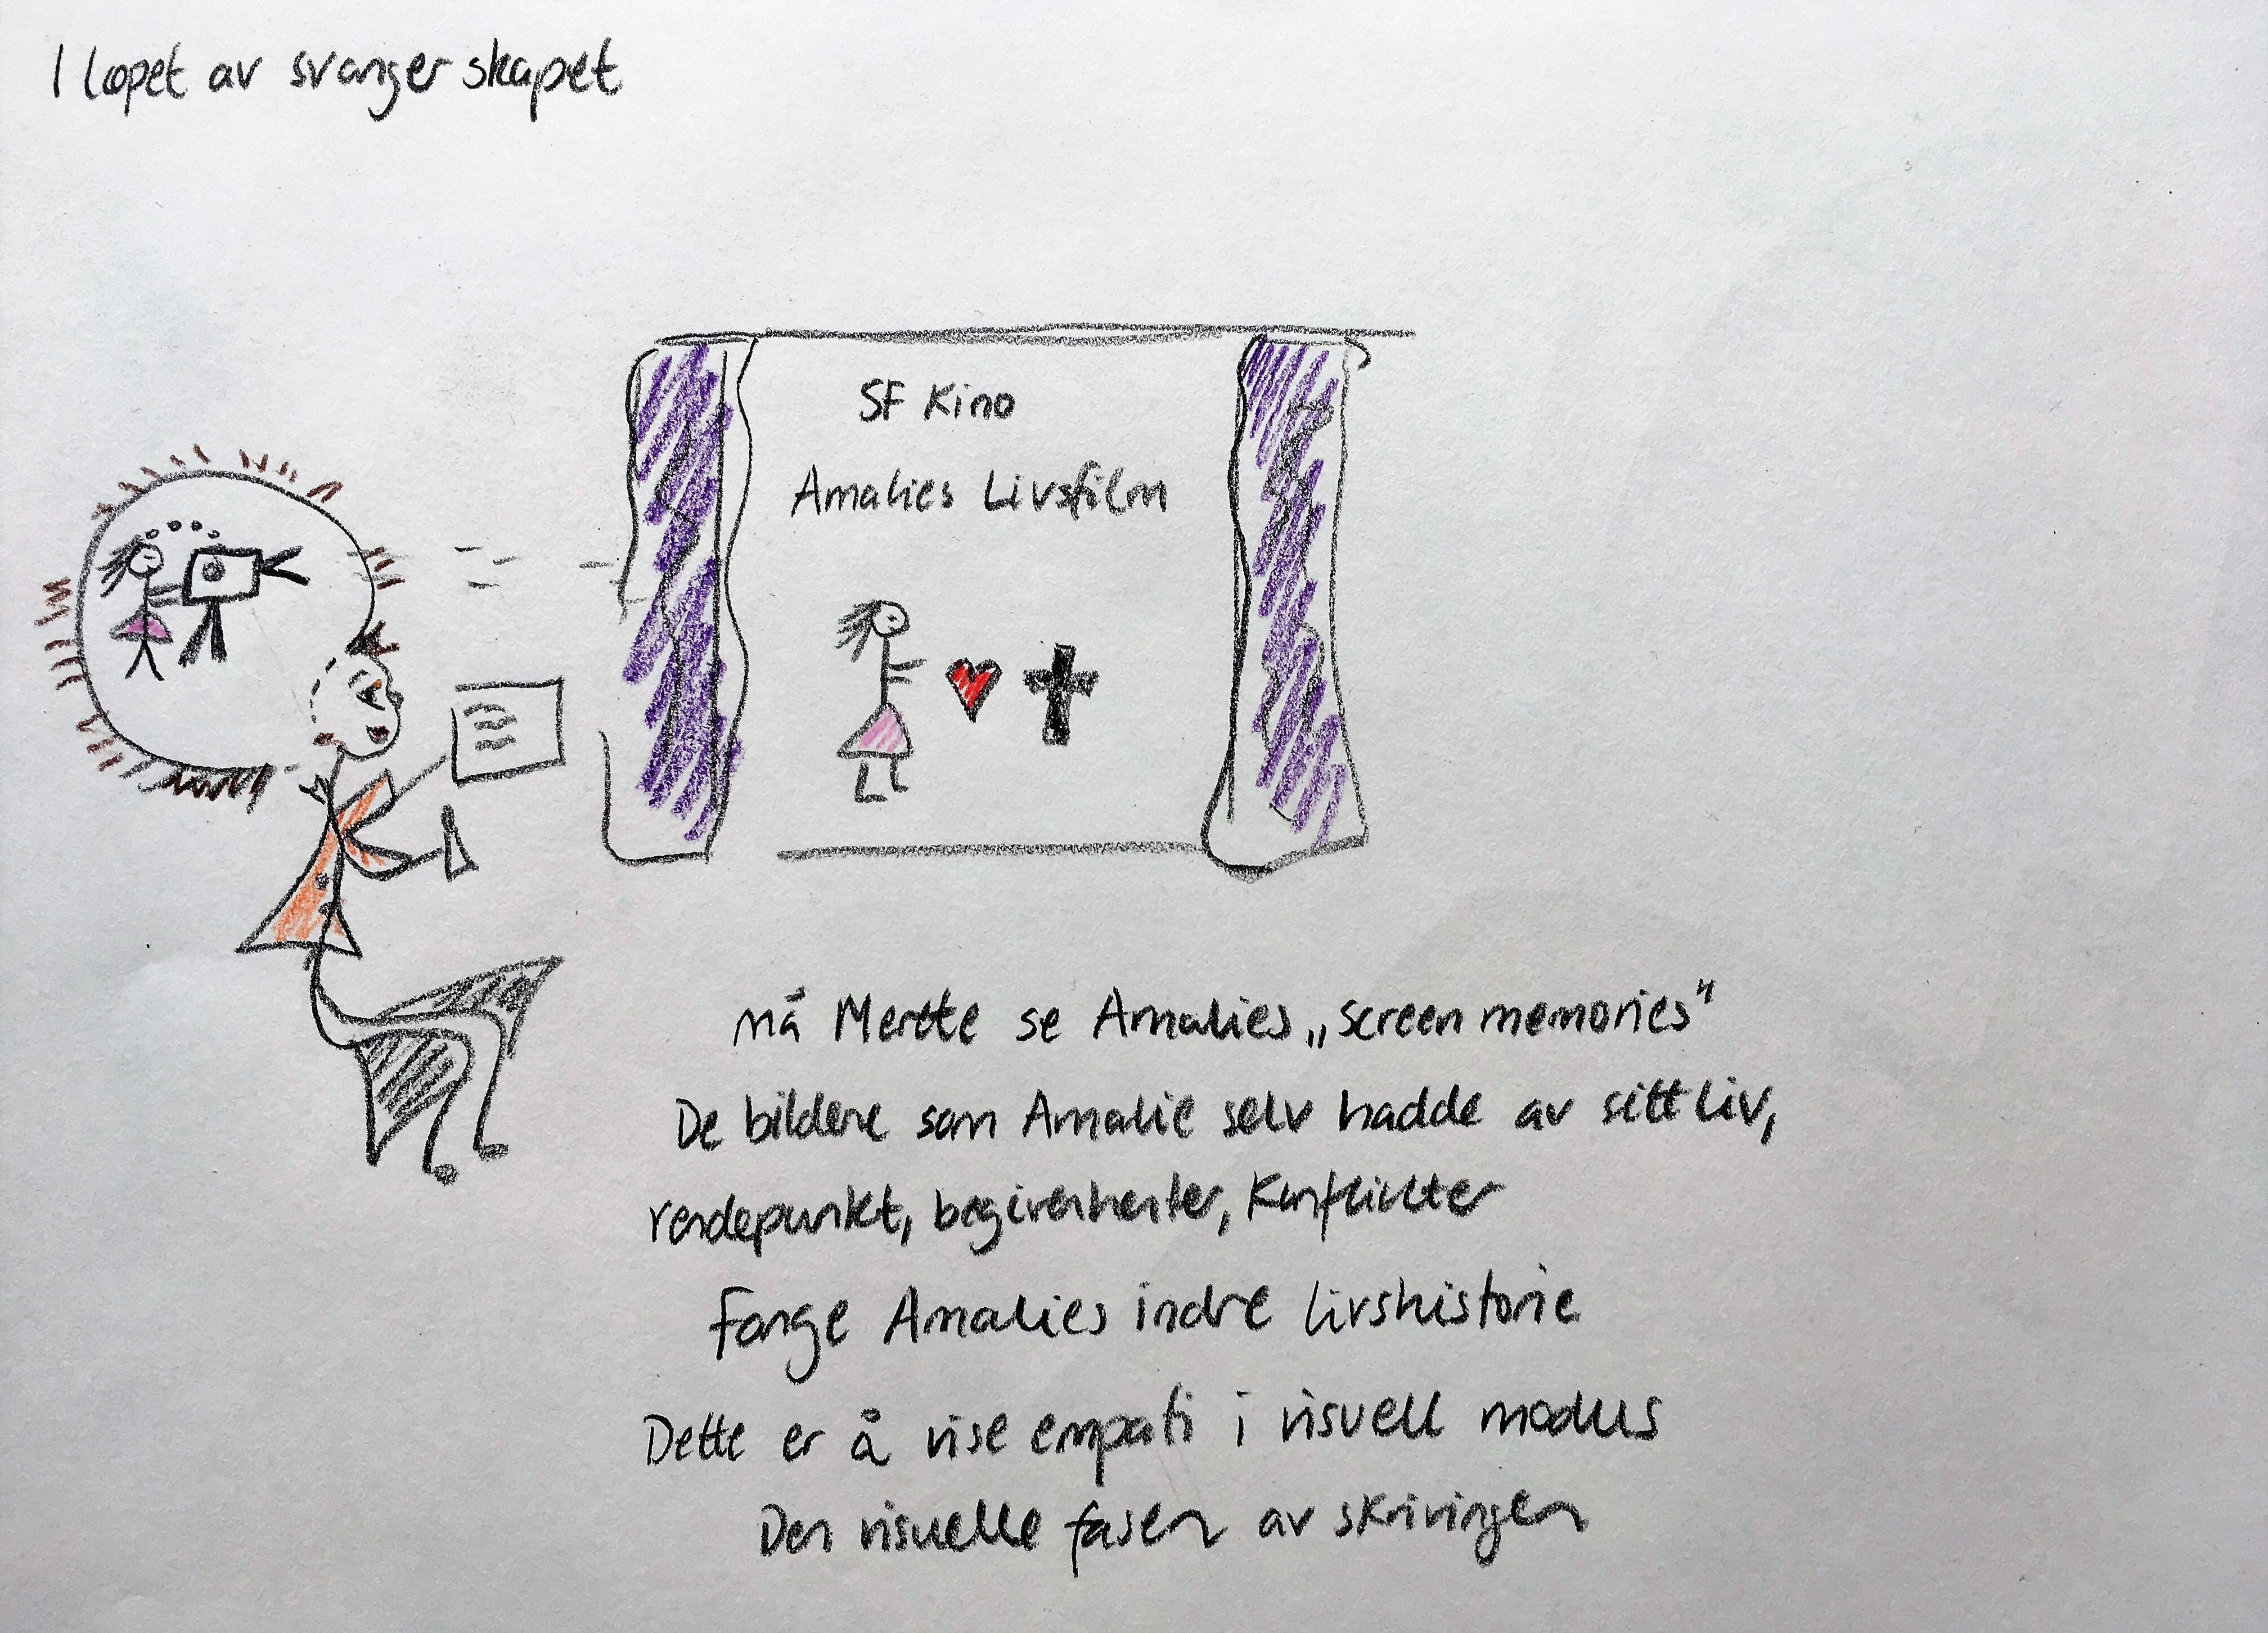 I løpet av svangerskapet
SF Kino
Amalies Livsfilm
må Merete se Amalies „screen memories"
De bildene som Amalie selv hadde av sitt liv,
vendepunkt, begivenheter, Konflikter
fange Amalies indre livshistorie
Dette er å vise empati i visuell modus
Den visuelle fasen av skrivingen